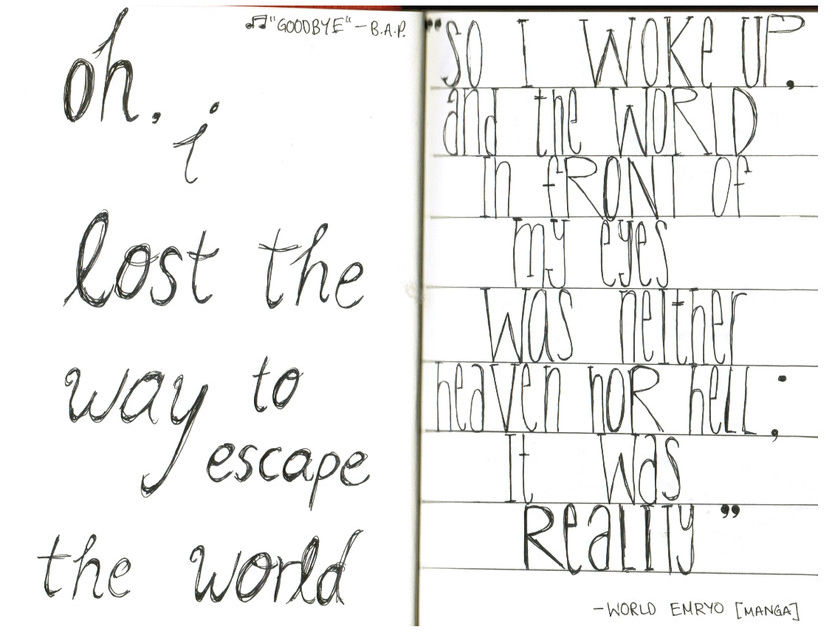 ♫"GOODBYE" – B.A.P.
oh.
i
lost the
way to
escape
the world
"So I WOKe UP.
and the WORLD
In fRONT of
my eyes
Was neither
heaven noR hell;
It was
ReaLITy"
–WORLD EMRYO [MANGA]